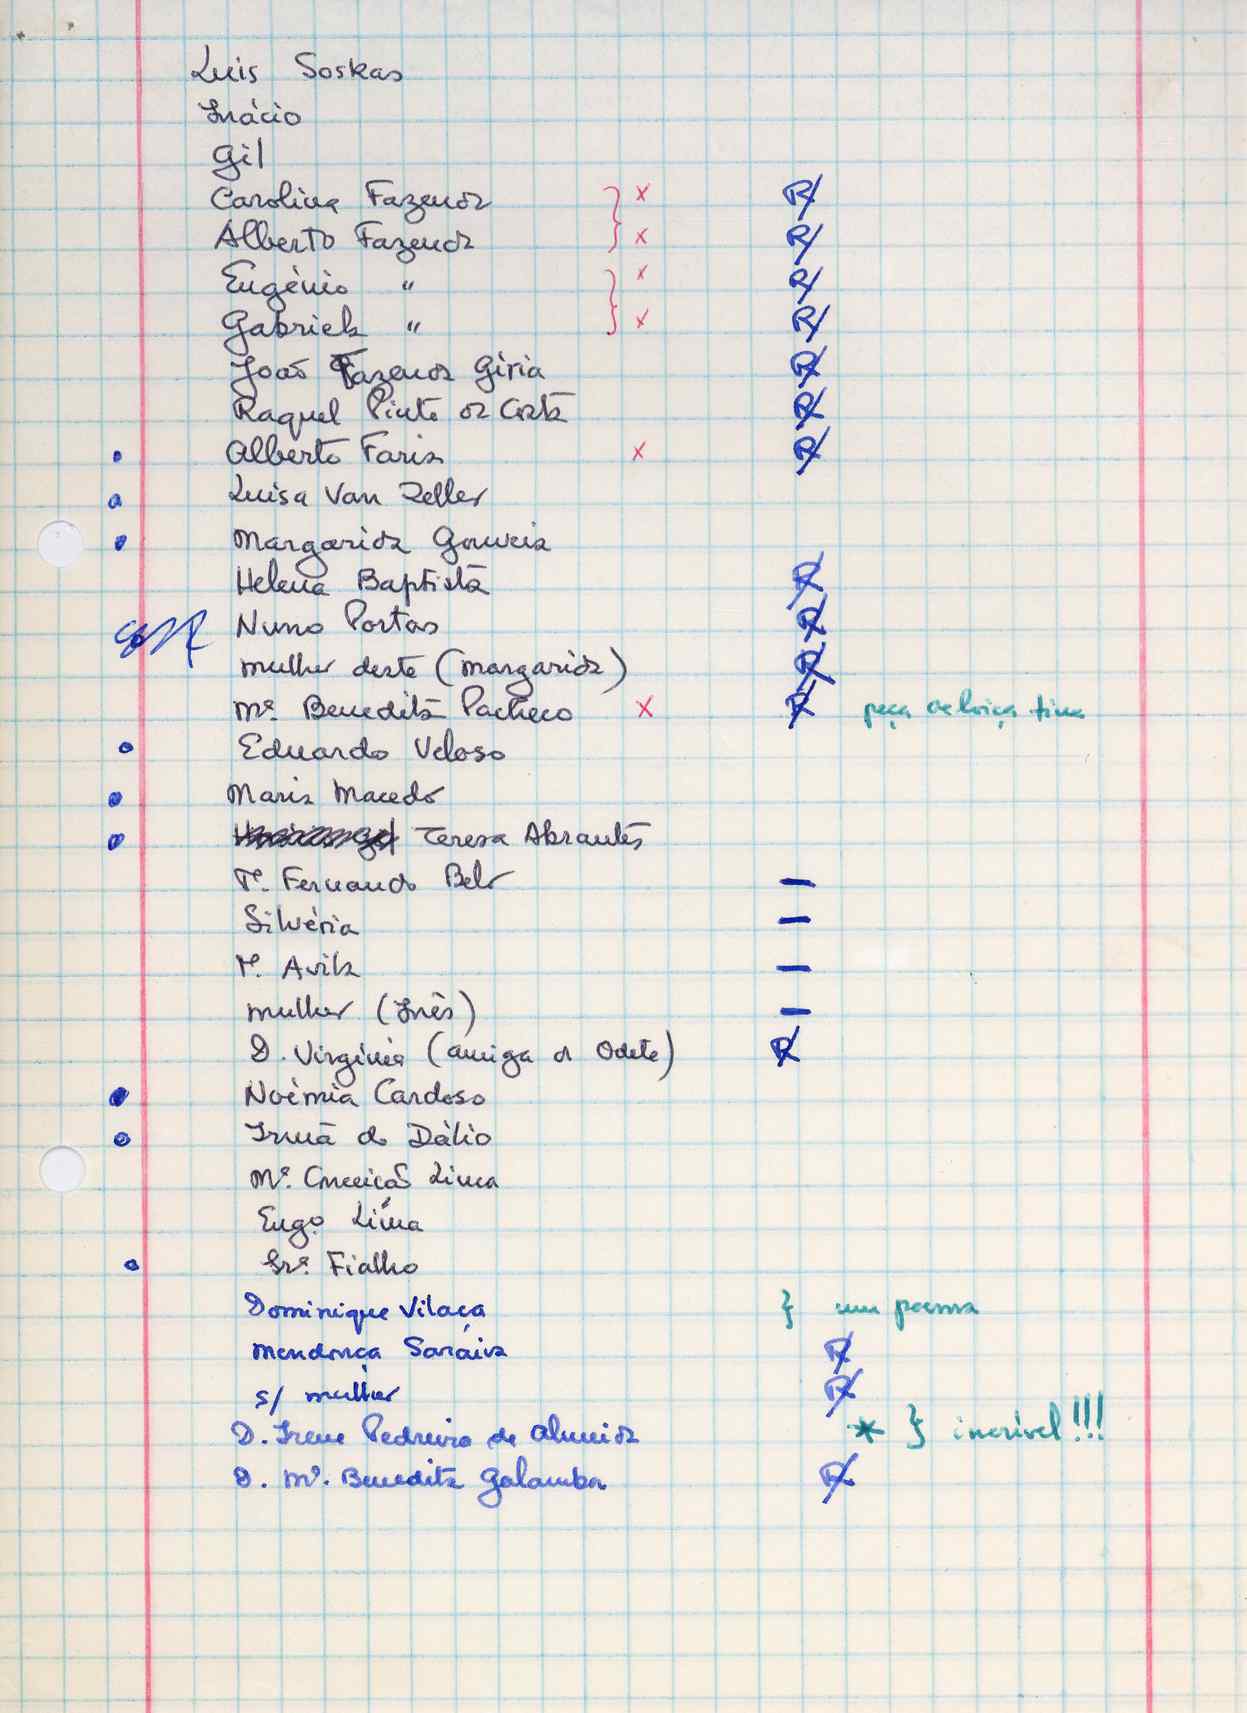 Luis Soskas
Inácio
Gil
Carolina Fazenda } x R
Alberto Fazenda } x R
Eugénio " } x R
Gabriela " } x R
João Fazenda Giria R
Raquel Pinto da Costa R
Alberto Faria x R
Luisa Van Zeller
Margarida Gouveia
Helena Baptista R
Nuno Portas R
mulher deste (Margarida) R
Mª. Benedita Pacheco x R peça de loiça fina
Eduardo Veloso
Maria Macedo
Teresa Abrantes
Fernando Belo —
Silvéria —
Avila —
mulher (Inês) —
D. Virginia (amiga da Odete) R
Noémia Cardoso
Irmã do Dálio
Mª. Conceição Lima
Engº Lima
Srª. Fialho
Dominique Vilaça } um poema
Mendonça Saraiva R
s/ mulher R
D. Irene Pedreiro de Almeida * } incrível!!!
D. Mª. Benedita Galamba R